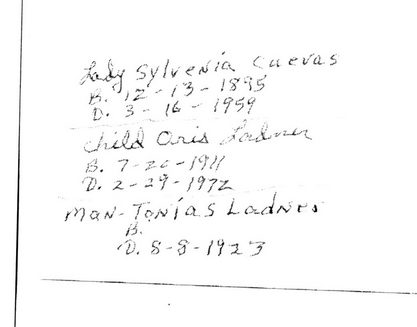 Lady Sylvenia Cuevas
B. 12-13-1895
D. 3-16-1959
Child Oris Ladner
B. 7-20-1911
D. 2-29-1972
Man-Tonías Ladner
B.
D. 8-8-1923